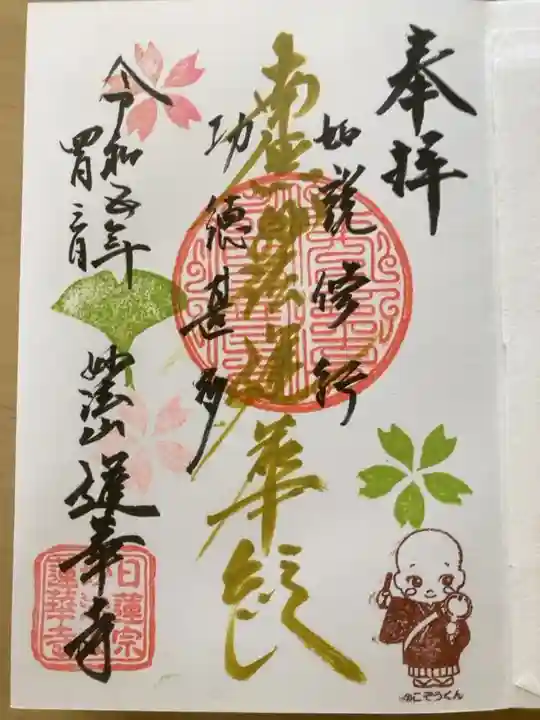 奉拝
如説修行
南無妙法蓮華経
功徳甚多
令和五年
四月三日
妙法山蓮華寺
日蓮宗
蓮華寺
こぞうくん